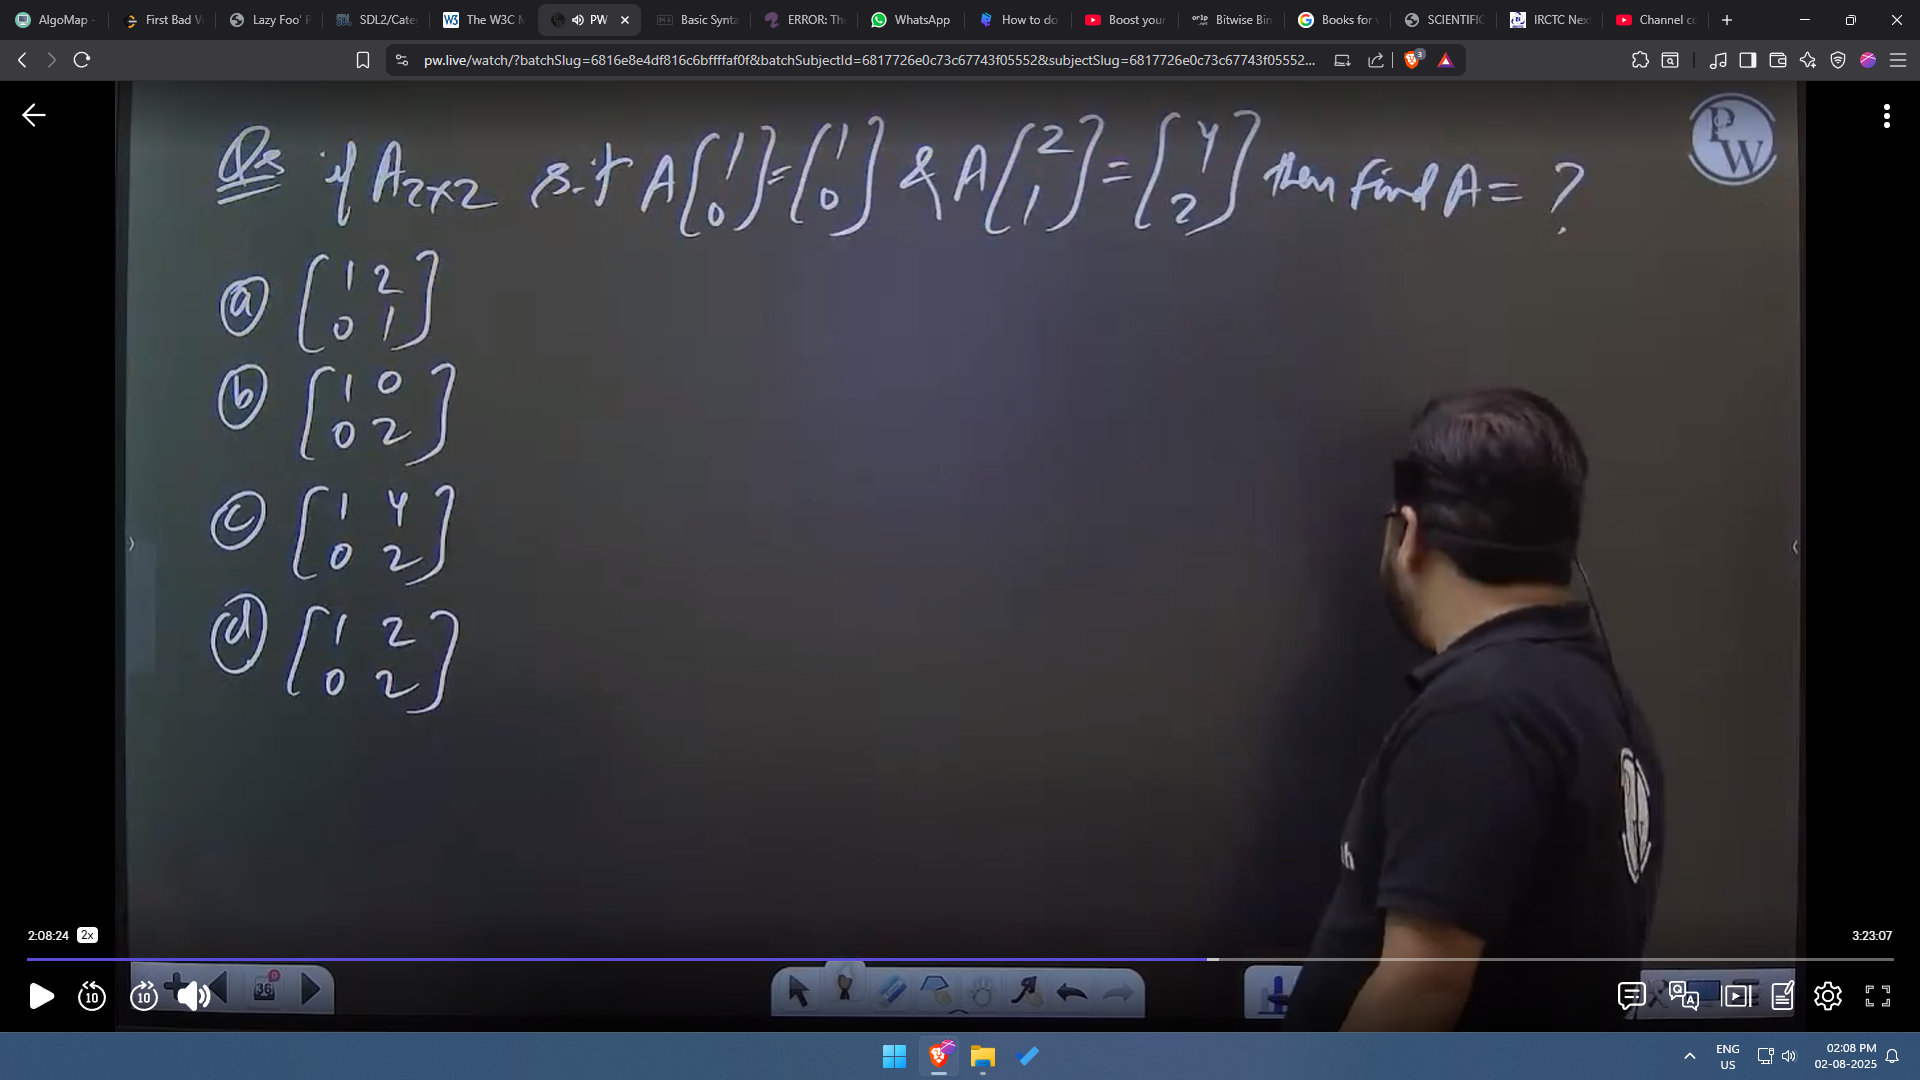 AlgoMap -
First Bad V
Lazy Foo' P
SDL2/Cate
The W3C M
PW
Basic Synta
ERROR: The
WhatsApp
How to do
Boost your
Bitwise Bin
Books for
SCIENTIFIC
IRCTC Nex
Channel co
pw.live/watch/?batchSlug=6816e8e4df816c6bffffaf0f&batchSubjectId=6817726e0c73c67743f05552&subjectSlug=6817726e0c73c67743f05552...
3
Qs if A2×2 s.t A[1 0] = [1 0] & A[2 1] = [4 2] then find A = ?
PW
ⓐ [1 2
0 1]
ⓑ [1 0
0 2]
ⓒ [1 4
0 2]
ⓓ [1 2
0 2]
2:08:24 2x
3:23:07
10 10
36
ENG
US
02:08 PM
02-08-2025